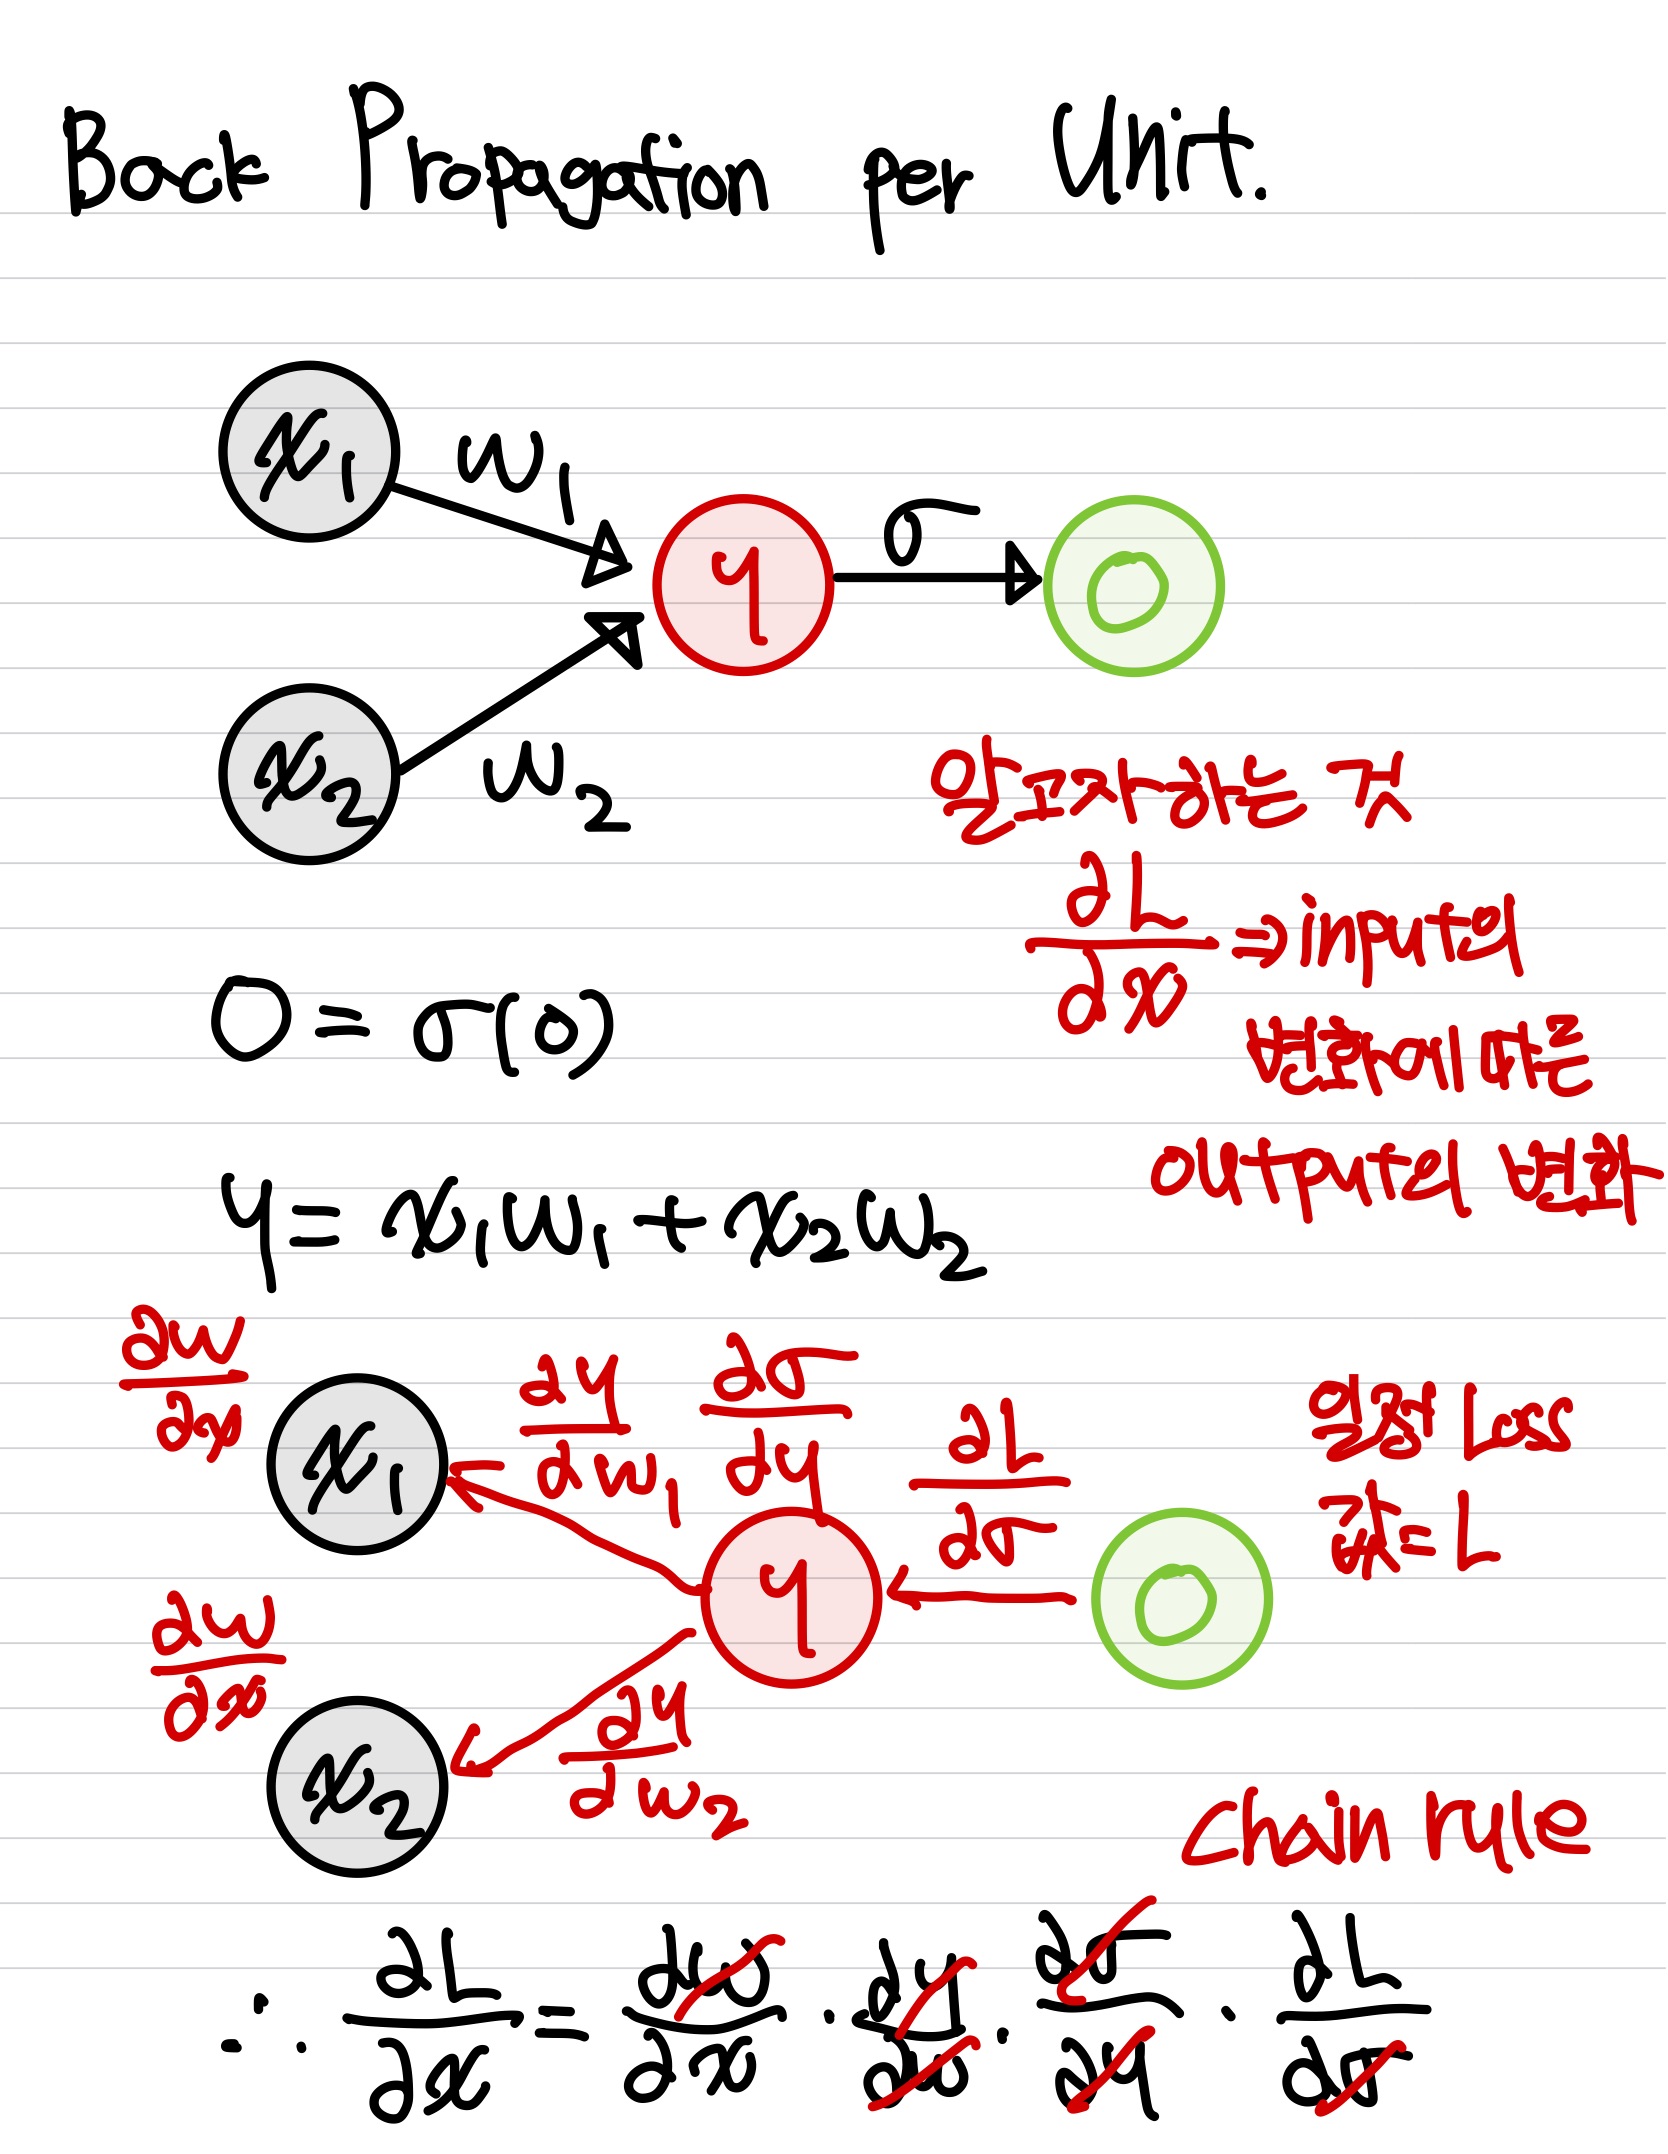 Back Propagation per Unit.
x₁
w₁
y
σ
O
x₂
w₂
알고자하는 것
∂L/∂x ⇒ input의
변화에 따른
output의 변화
O = σ(o)
y = x₁w₁ + x₂w₂
∂w/∂x
x₁
∂y/∂w₁
∂σ/∂y
∂L/∂σ
일정 Loss
값 = L
y
O
∂w/∂x
x₂
∂y/∂w₂
Chain rule
∴ ∂L/∂x = ∂w/∂x · ∂y/∂w · ∂σ/∂y · ∂L/∂σ